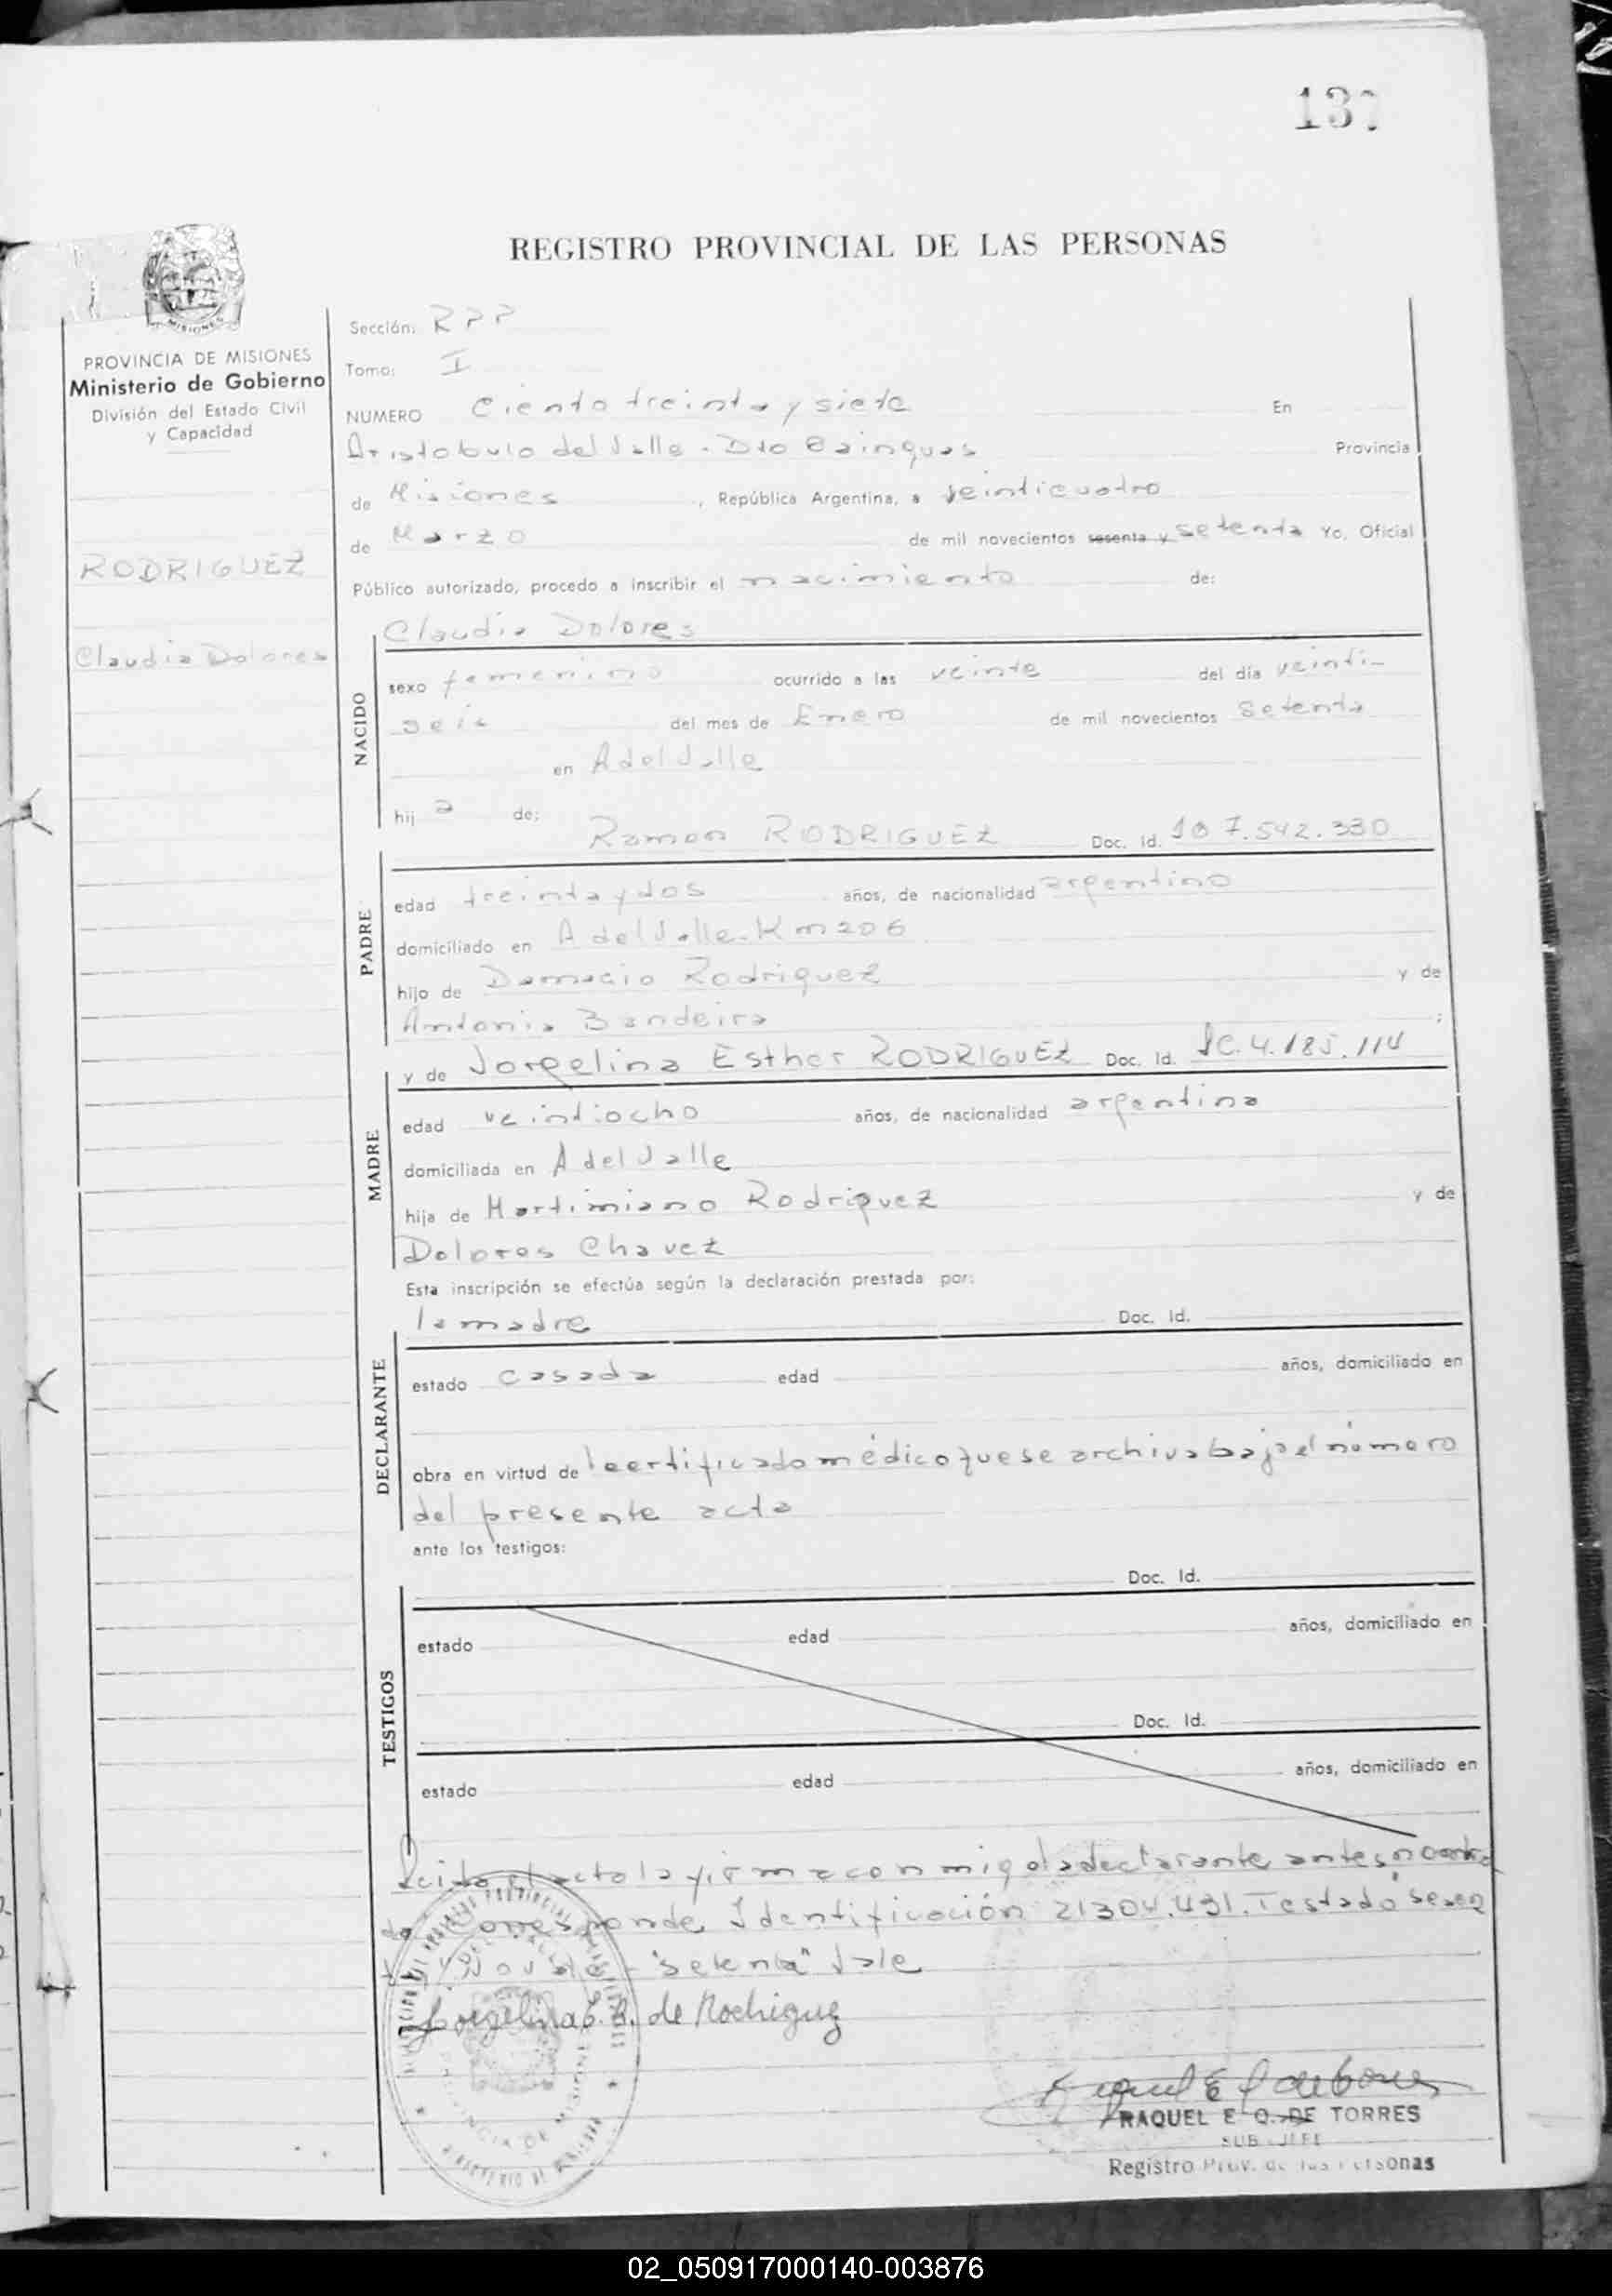 137
REGISTRO PROVINCIAL DE LAS PERSONAS
MISIONES
PROVINCIA DE MISIONES
Ministerio de Gobierno
División del Estado Civil
y Capacidad
RODRIGUEZ
Claudia Dolores
Sección: RPP
Tomo: I
NUMERO Ciento treinta y siete En
Aristobulo del Valle - Dto Cainguas Provincia
de Misiones, República Argentina, a veinticuatro
de Marzo de mil novecientos sesenta y setenta Yo, Oficial
Público autorizado, procedo a inscribir el nacimiento de:
Claudia Dolores
NACIDO
sexo femenino ocurrido a las veinte del día veinti-
seis del mes de Enero de mil novecientos setenta
en A del Valle
hij a de:
Ramon RODRIGUEZ Doc. Id. 7.542.330
PADRE
edad treinta y dos años, de nacionalidad argentino
domiciliado en A del Valle - Km 206
hijo de Damacio Rodriguez y de
Antonia Bandeira ;
y de Jorgelina Esther RODRIGUEZ Doc. Id. 4.185.114
MADRE
edad veintiocho años, de nacionalidad argentina
domiciliada en A del Valle
hija de Martimiano Rodriguez y de
Dolores Chavez
Esta inscripción se efectúa según la declaración prestada por:
la madre Doc. Id.
DECLARANTE
estado casada edad años, domiciliado en
obra en virtud de l certificado médico que se archiva bajo el número
del presente acta
ante los testigos:
Doc. Id.
TESTIGOS
estado edad años, domiciliado en
Doc. Id.
estado edad años, domiciliado en
Leida el acta la firma conmigo la declarante antes
Corresponde Identificación 21304.491. Testado "sesen
"setenta" Vale
Jorgelina E. R. de Rodriguez
RAQUEL E. O. DE TORRES
SUB-JEFE
Registro Prov. de las Personas
PROVINCIA DE MISIONES
02_050917000140-003876